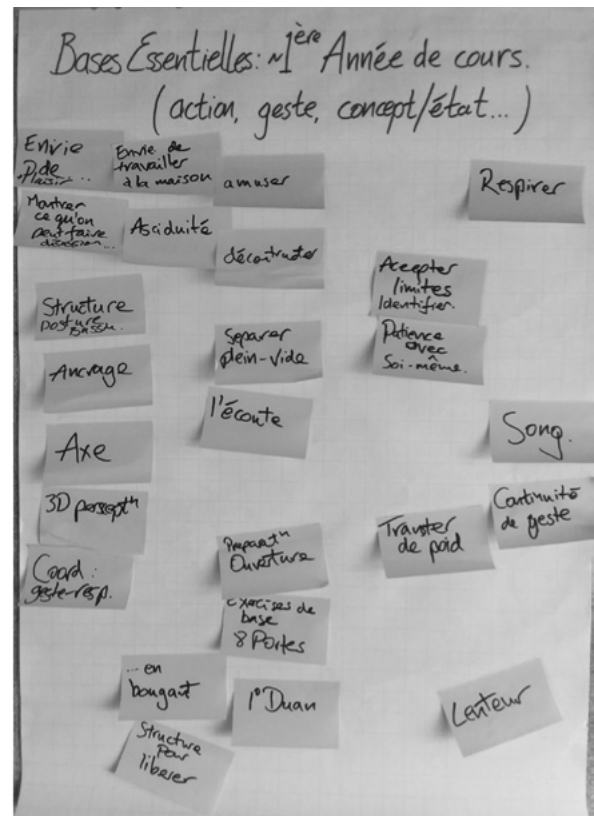 Bases Essentielles: ~1ère Année de cours.
(action, geste, concept/état...)
Envie
de
Plaisir...
Envie de
travailler
à la maison
amuser
Respirer
Montrer
ce qu'on
peut faire
Asciduité
décontracter
Accepter
limites
Identifier.
Structure
posture
bassin.
Séparer
plein-vide
Patience
avec
Soi-même.
Ancrage
l'écoute
Axe
Song.
3D perceptn
Continuité
de geste
Transfer
de poid
Preparatn
Ouverture
Coord:
geste-resp.
exercises de
base
8 Portes
... en
bougant
1° Duan
Lenteur
Structure
pour
liberer